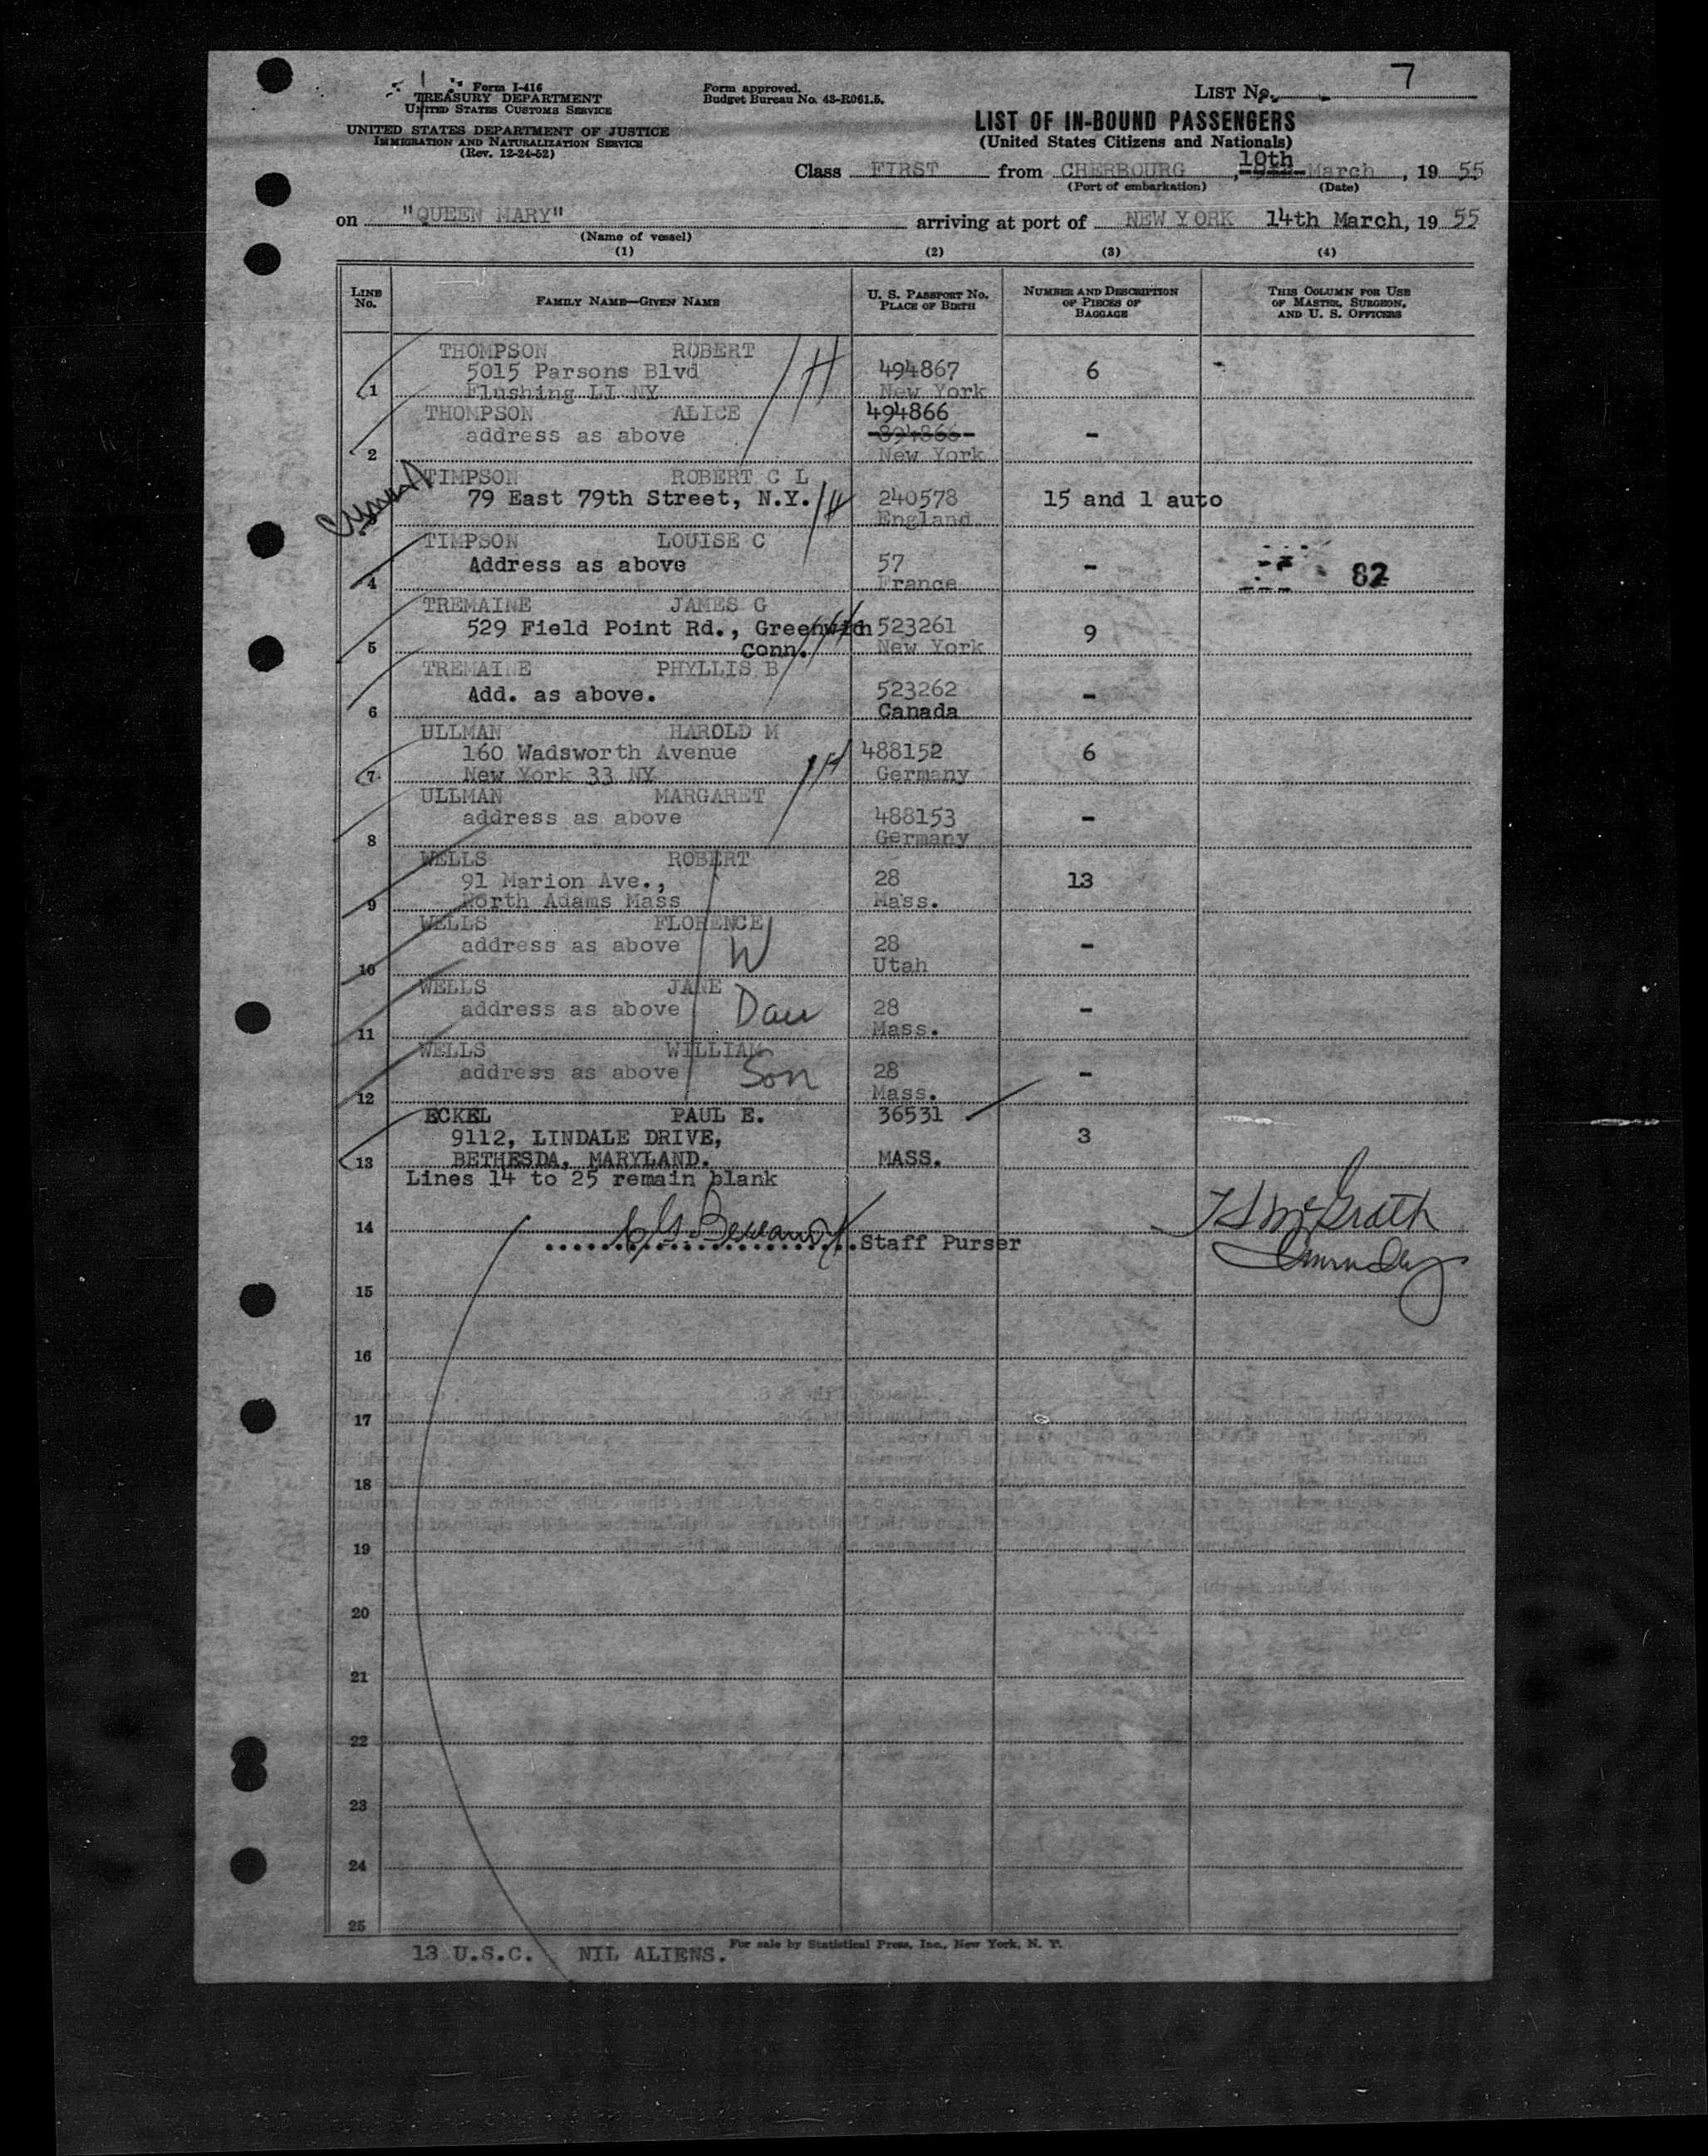 Form I-416
TREASURY DEPARTMENT
UNITED STATES CUSTOMS SERVICE
UNITED STATES DEPARTMENT OF JUSTICE
IMMIGRATION AND NATURALIZATION SERVICE
(Rev. 12-24-52)
Form approved.
Budget Bureau No. 43-R061.5.
LIST No. 7
LIST OF IN-BOUND PASSENGERS
(United States Citizens and Nationals)
Class FIRST from CHERBOURG, 10th March, 19 55
(Port of embarkation) (Date)
on "QUEEN MARY" arriving at port of NEW YORK 14th March, 19 55
(Name of vessel)
(1) (2) (3) (4)
LINE No. FAMILY NAME—GIVEN NAME U. S. PASSPORT No. PLACE OF BIRTH NUMBER AND DESCRIPTION OF PIECES OF BAGGAGE THIS COLUMN FOR USE OF MASTER, SURGEON, AND U. S. OFFICERS
THOMPSON ROBERT H
5015 Parsons Blvd 494867 6 -
1 Flushing LI NY New York
THOMPSON ALICE 494866
address as above 894866 -
2 New York
TIMPSON ROBERT C L
79 East 79th Street, N.Y. H 240578 15 and 1 auto
England
TIMPSON LOUISE C
Address as above 57 - 82
4 France
TREMAINE JAMES G
529 Field Point Rd., Greenwich 523261 9
5 Conn. New York
TREMAINE PHYLLIS B
Add. as above. 523262 -
6 Canada
ULLMAN HAROLD M
160 Wadsworth Avenue H 488152 6
7 New York 33 NY Germany
ULLMAN MARGARET
address as above 488153 -
8 Germany
WELLS ROBERT
91 Marion Ave., 28 13
9 North Adams Mass Mass.
WELLS FLORENCE
address as above W 28 -
10 Utah
WELLS JANE
address as above Dau 28 -
11 Mass.
WELLS WILLIAM
address as above Son 28 -
12 Mass.
ECKEL PAUL E. 36531
9112, LINDALE DRIVE, 3
13 BETHESDA, MARYLAND. MASS.
Lines 14 to 25 remain blank
14 McGrath
Staff Purser
15
16
17
18
19
20
21
22
23
24
25
13 U.S.C. NIL ALIENS.
For sale by Statistical Press, Inc., New York, N. Y.